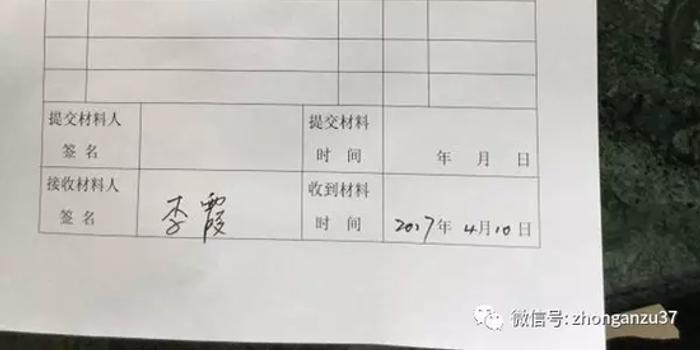 提交材料人 提交材料
签名 时间 年 月 日
接收材料人 收到材料
签名 李霞 时间 2017年 4月10日
微信号: zhonganzu37